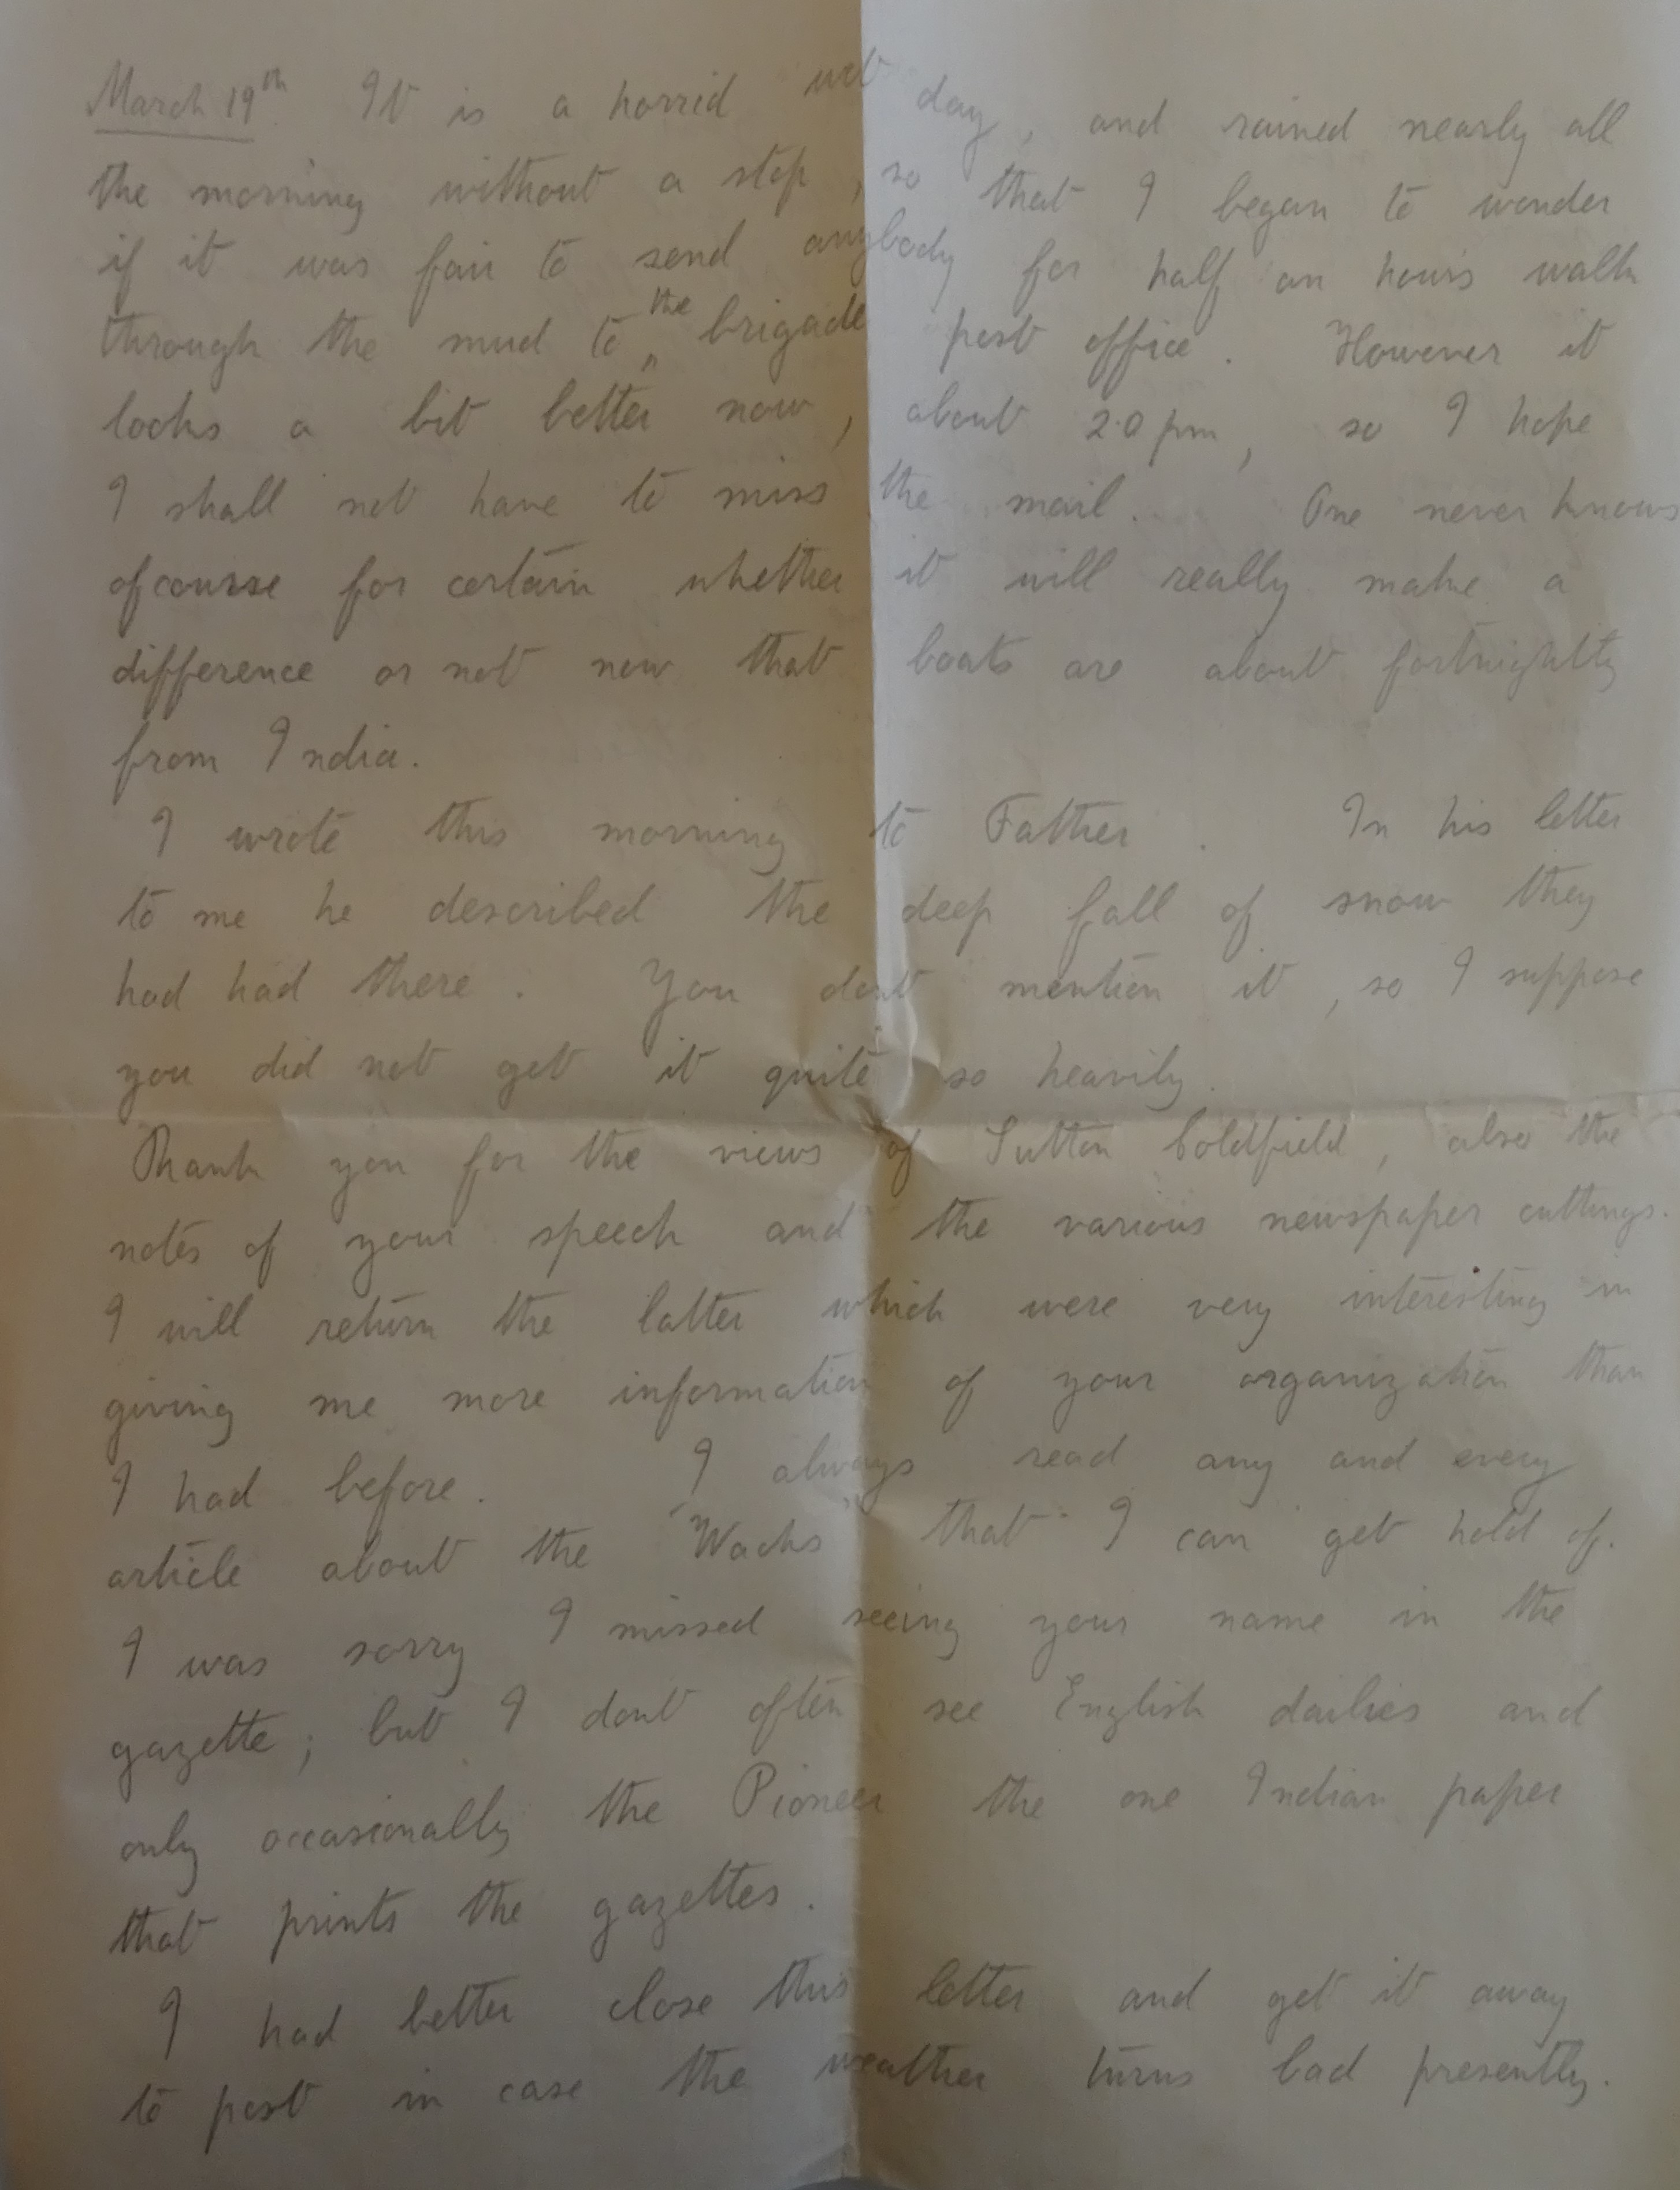 March 19th. It is a horrid wet day, and rained nearly all
the morning without a stop, so that I began to wonder
if it was fair to send anybody for half an hours walk
through the mud to the brigade post office. However it
looks a bit better now, about 2.0 pm, so I hope
I shall not have to miss the mail. One never knows
ofcourse for certain whether it will really make a
difference or not now that boats are about fortnightly
from India.
I wrote this morning to Father. In his letter
to me he described the deep fall of snow they
had had there. You dont mention it, so I suppose
you did not get it quite so heavily.
Thank you for the views of Sutton Coldfield, also the
notes of your speech and the various newspaper cuttings.
I will return the latter which were very interesting in
giving me more information of your organization than
I had before. I always read any and every
article about the "Waacks" that I can get hold of.
I was sorry I missed seeing your name in the
gazette; but I dont often see English dailies and
only occasionally the Pioneer the one Indian paper
that prints the gazettes.
I had better close this letter and get it away
to post in case the weather turns bad presently.